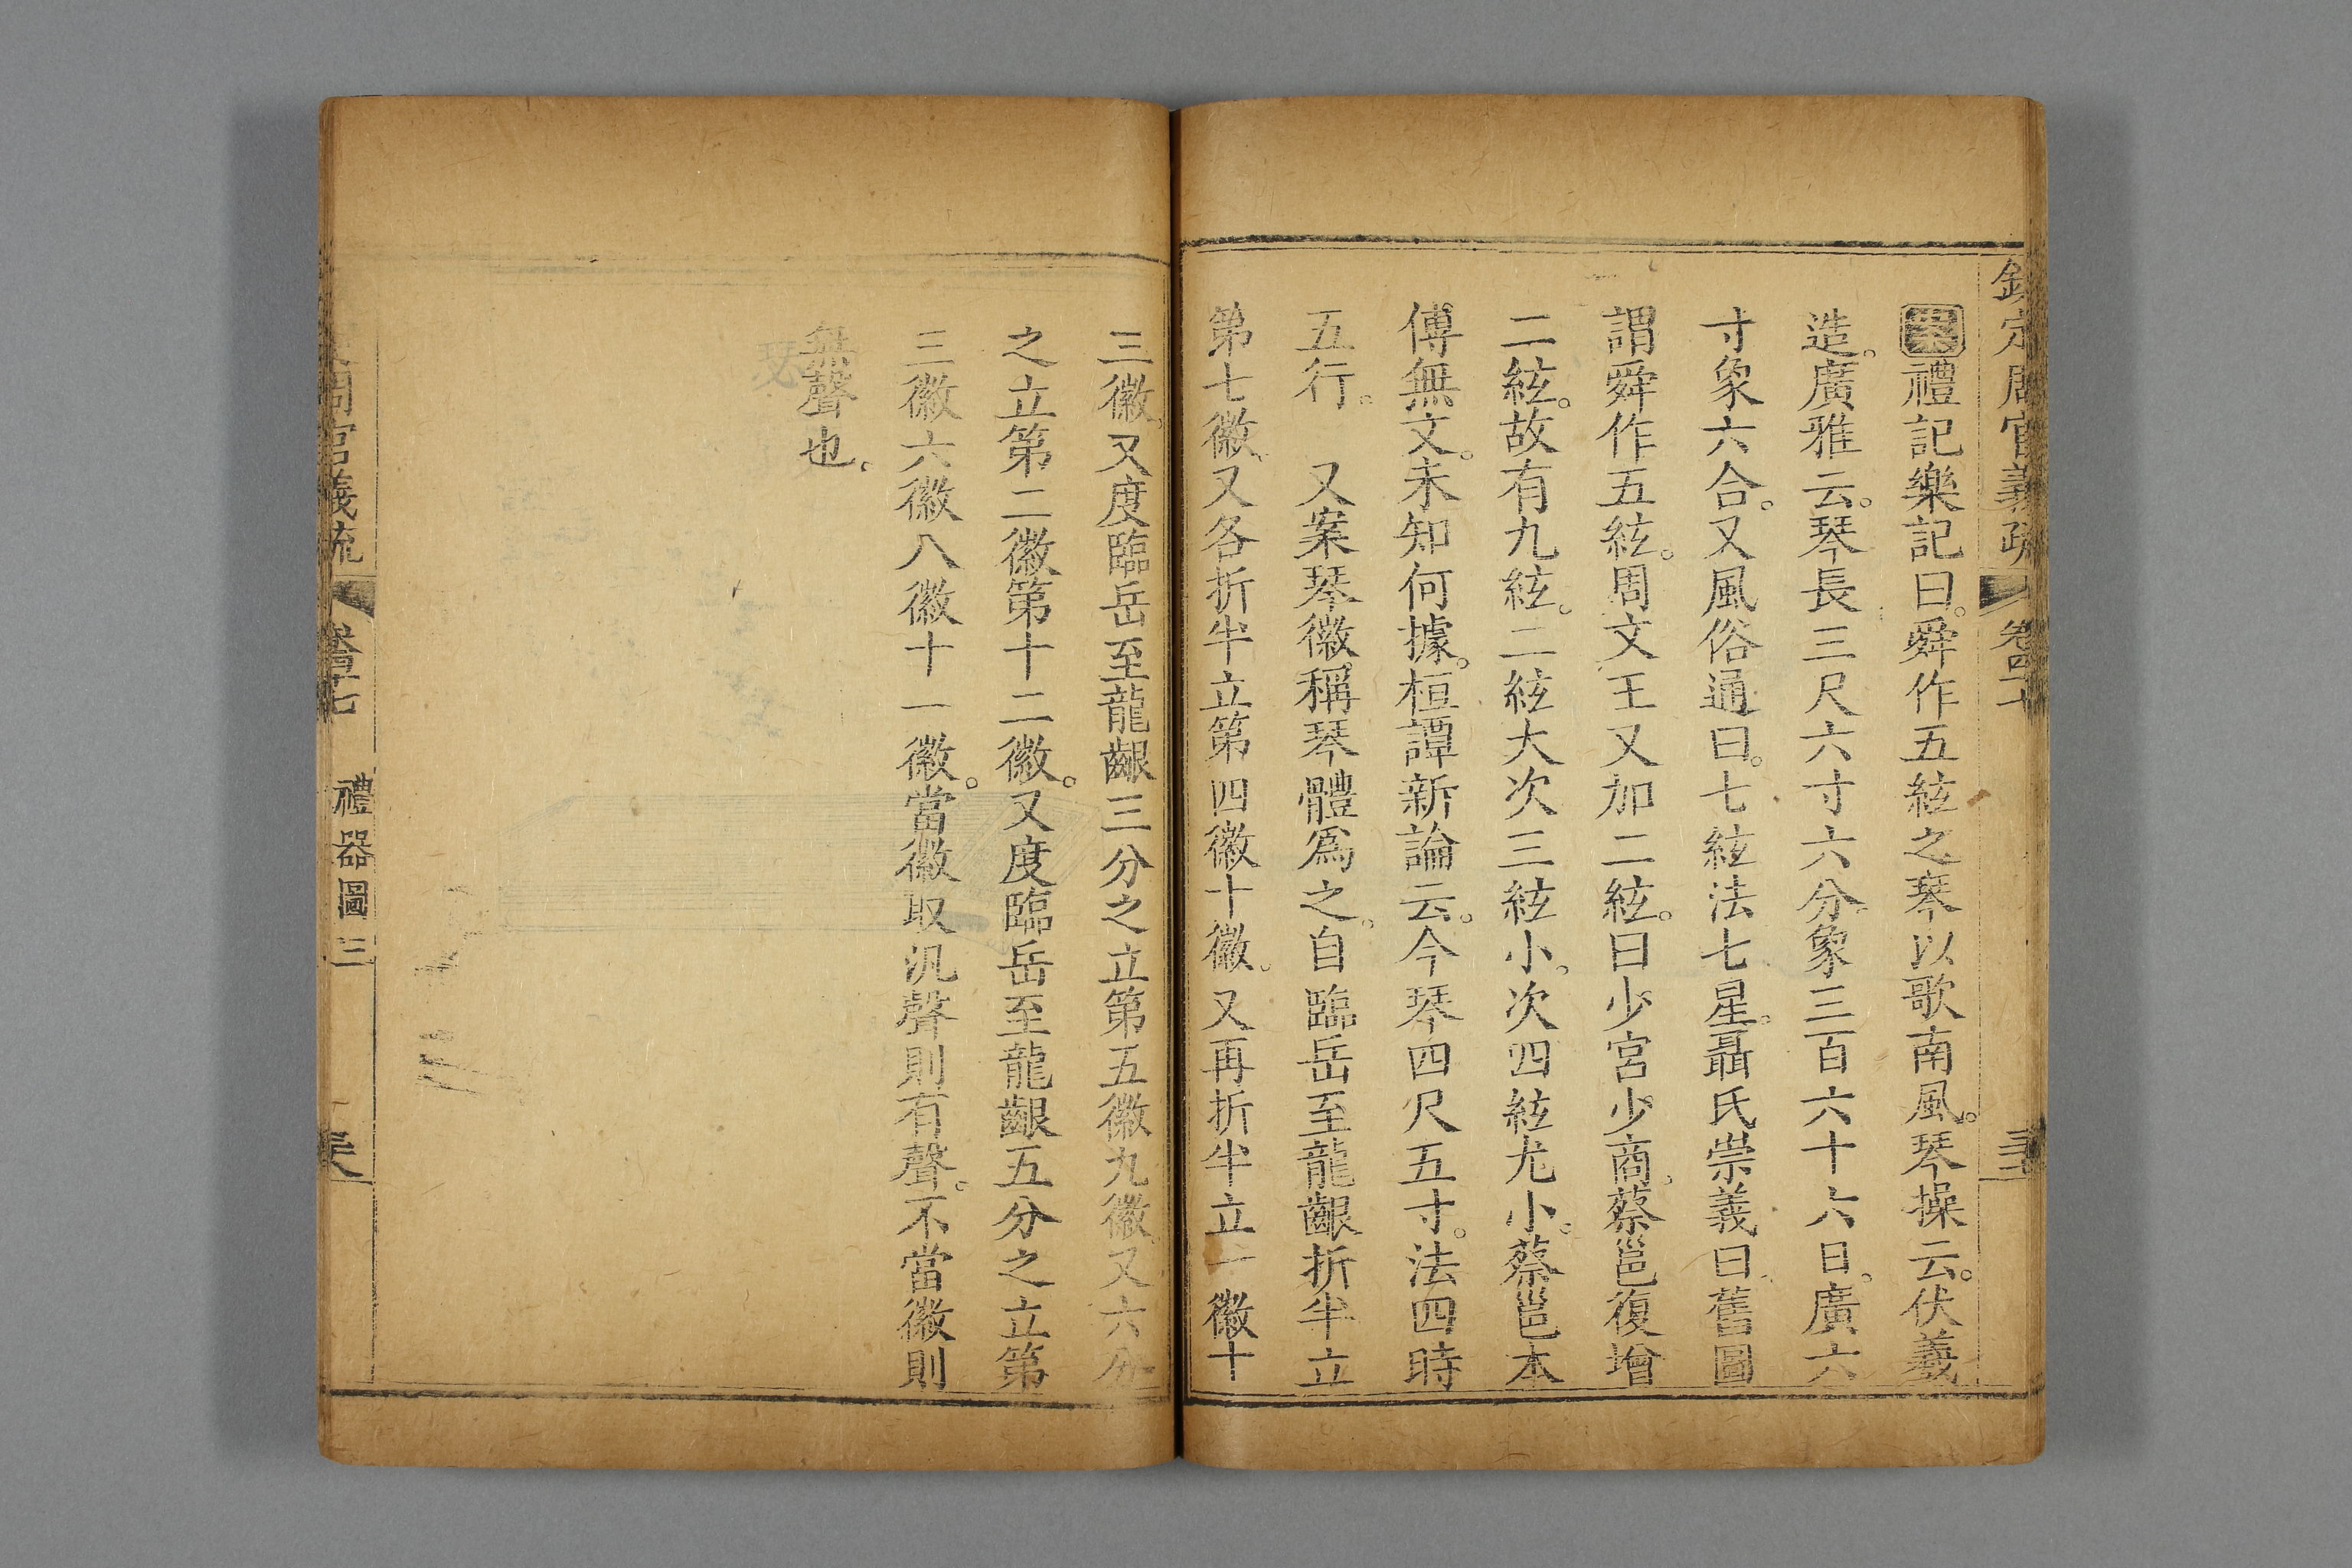 欽定周官義疏 卷四十
案禮記樂記曰。舜作五絃之琴以歌南風。琴操云。伏羲
造。廣雅云。琴長三尺六寸六分。象三百六十六日。廣六
寸象六合。又風俗通曰。七絃法七星。聶氏崇義曰舊圖
謂舜作五絃。周文王又加二絃。曰少宮少商。蔡邕復增
二絃。故有九絃。二絃大次三絃小。次四絃尤小。蔡邕本
傅無文。未知何據。桓譚新論云。今琴四尺五寸。法四時
五行。　又案琴徽。稱琴體爲之。自臨岳至龍齦折半立
第七徽。又各折半立第四徽十徽。又再折半立一徽十
三徽。又度臨岳至龍齦三分之立第五徽九徽。又六分
之立第二徽第十二徽。又度臨岳至龍齦五分之立第
三徽六徽八徽十一徽。當徽取汎聲則有聲。不當徽則
無聲也。
周官義疏 禮器圖三